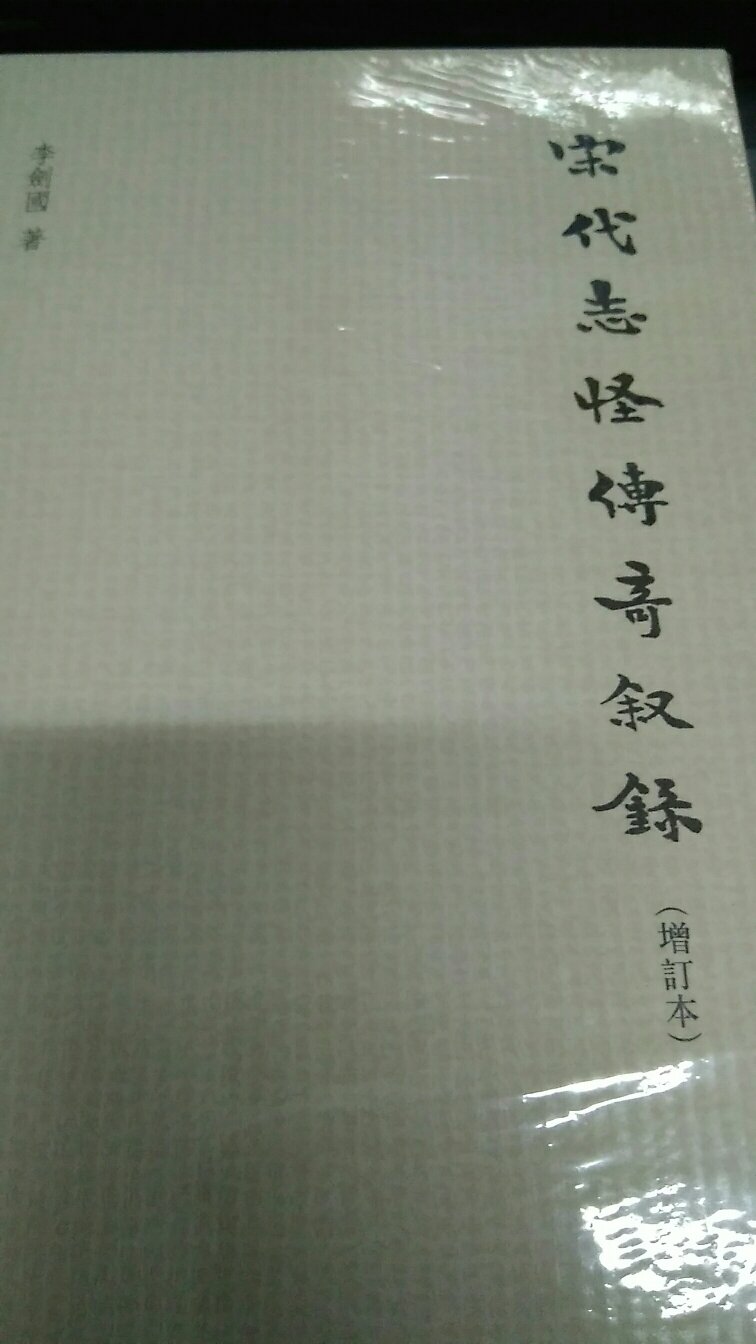 宋代志怪傳奇叙錄
(增訂本)
李劍國 著